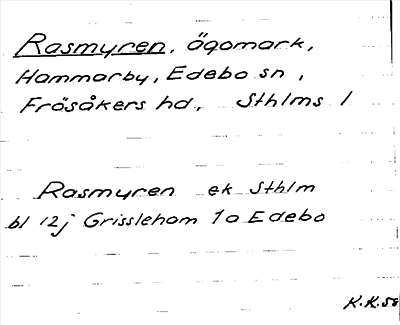 Rasmyren, Ägomark,
Hammarby, Edebo sn,
Frösåkers hd., Sthlms l
Rasmyren ek Sthlm
bl 12j Grissleham 1a Edebo
K.K.58